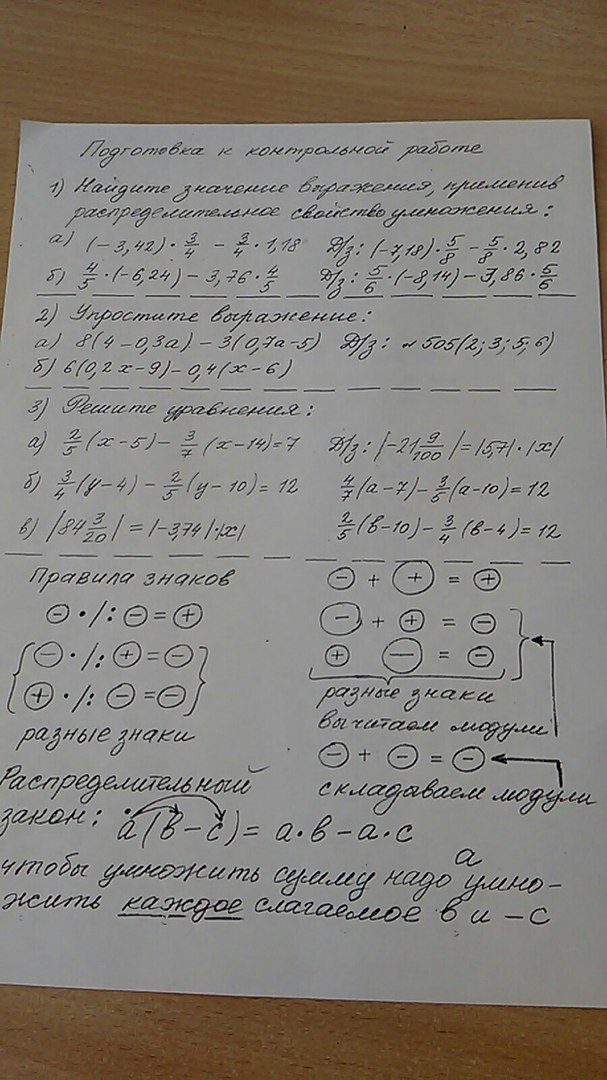 Подготовка к контрольной работе
1) Найдите значение выражения, применив
распределительное свойство умножения:
а) (-3,42)·3/4 - 3/4·1,18 Д/з: (-7,18)·5/8 - 5/8·2,82
б) 4/5·(-6,24) - 3,76·4/5 Д/з: 5/6·(-8,14) - 3,86·5/6
2) Упростите выражение:
а) 8(4-0,3а) - 3(0,7а-5) Д/з: №505(2;3;5;6)
б) 6(0,2х-9) - 0,4(х-6)
3) Решите уравнения:
а) 2/5(х-5) - 3/7(х-14)=7 Д/з: |-21 9/100|=|5,7|·|х|
б) 3/4(у-4) - 2/5(у-10)=12 4/7(а-7) - 3/5(а-10)=12
в) |84 3/20| = |-3,74|·|х| 2/5(в-10) - 3/4(в-4)=12
Правила знаков
⊖ ·/: ⊖ = ⊕
⊖ ·/: ⊕ = ⊖
⊕ ·/: ⊖ = ⊖
разные знаки
⊖ + ⊕ = ⊕
⊖ + ⊕ = ⊖
⊕ ⊖ = ⊖
разные знаки
вычитаем модули
⊖ + ⊖ = ⊖
складываем модули
Распределительный
закон: а(в-с)= а·в-а·с
чтобы умножить сумму надо умно-
а
жить каждое слагаемое в и -с